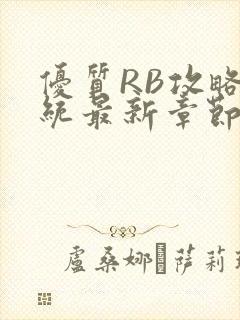 優質RB攻略
統最新章節
盧桑娜 萨莉